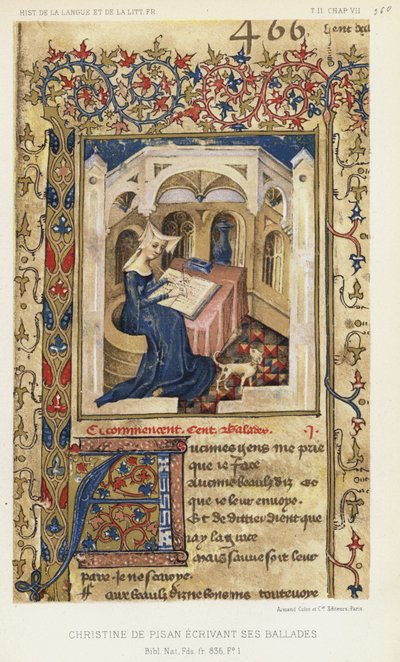 HIST. DE LA LANGUE ET DE LA LITT. FR.
T. II. CHAP. VII
260
466
Cy commencent Cent balades. .j.
Aucunes gens me prie
que je face
Aucuns beaulz diz et
que je leur envoye.
Et de dittier dient que
j'ay la grace
Mais sauve soit leur
paix. Je ne sçavoye.
aux beaulz diz ne bons mais toutevoye
Armand Colin et Cie Editeurs, Paris.
CHRISTINE DE PISAN ÉCRIVANT SES BALLADES
Bibl. Nat, Fds. fr. 836, F° 1